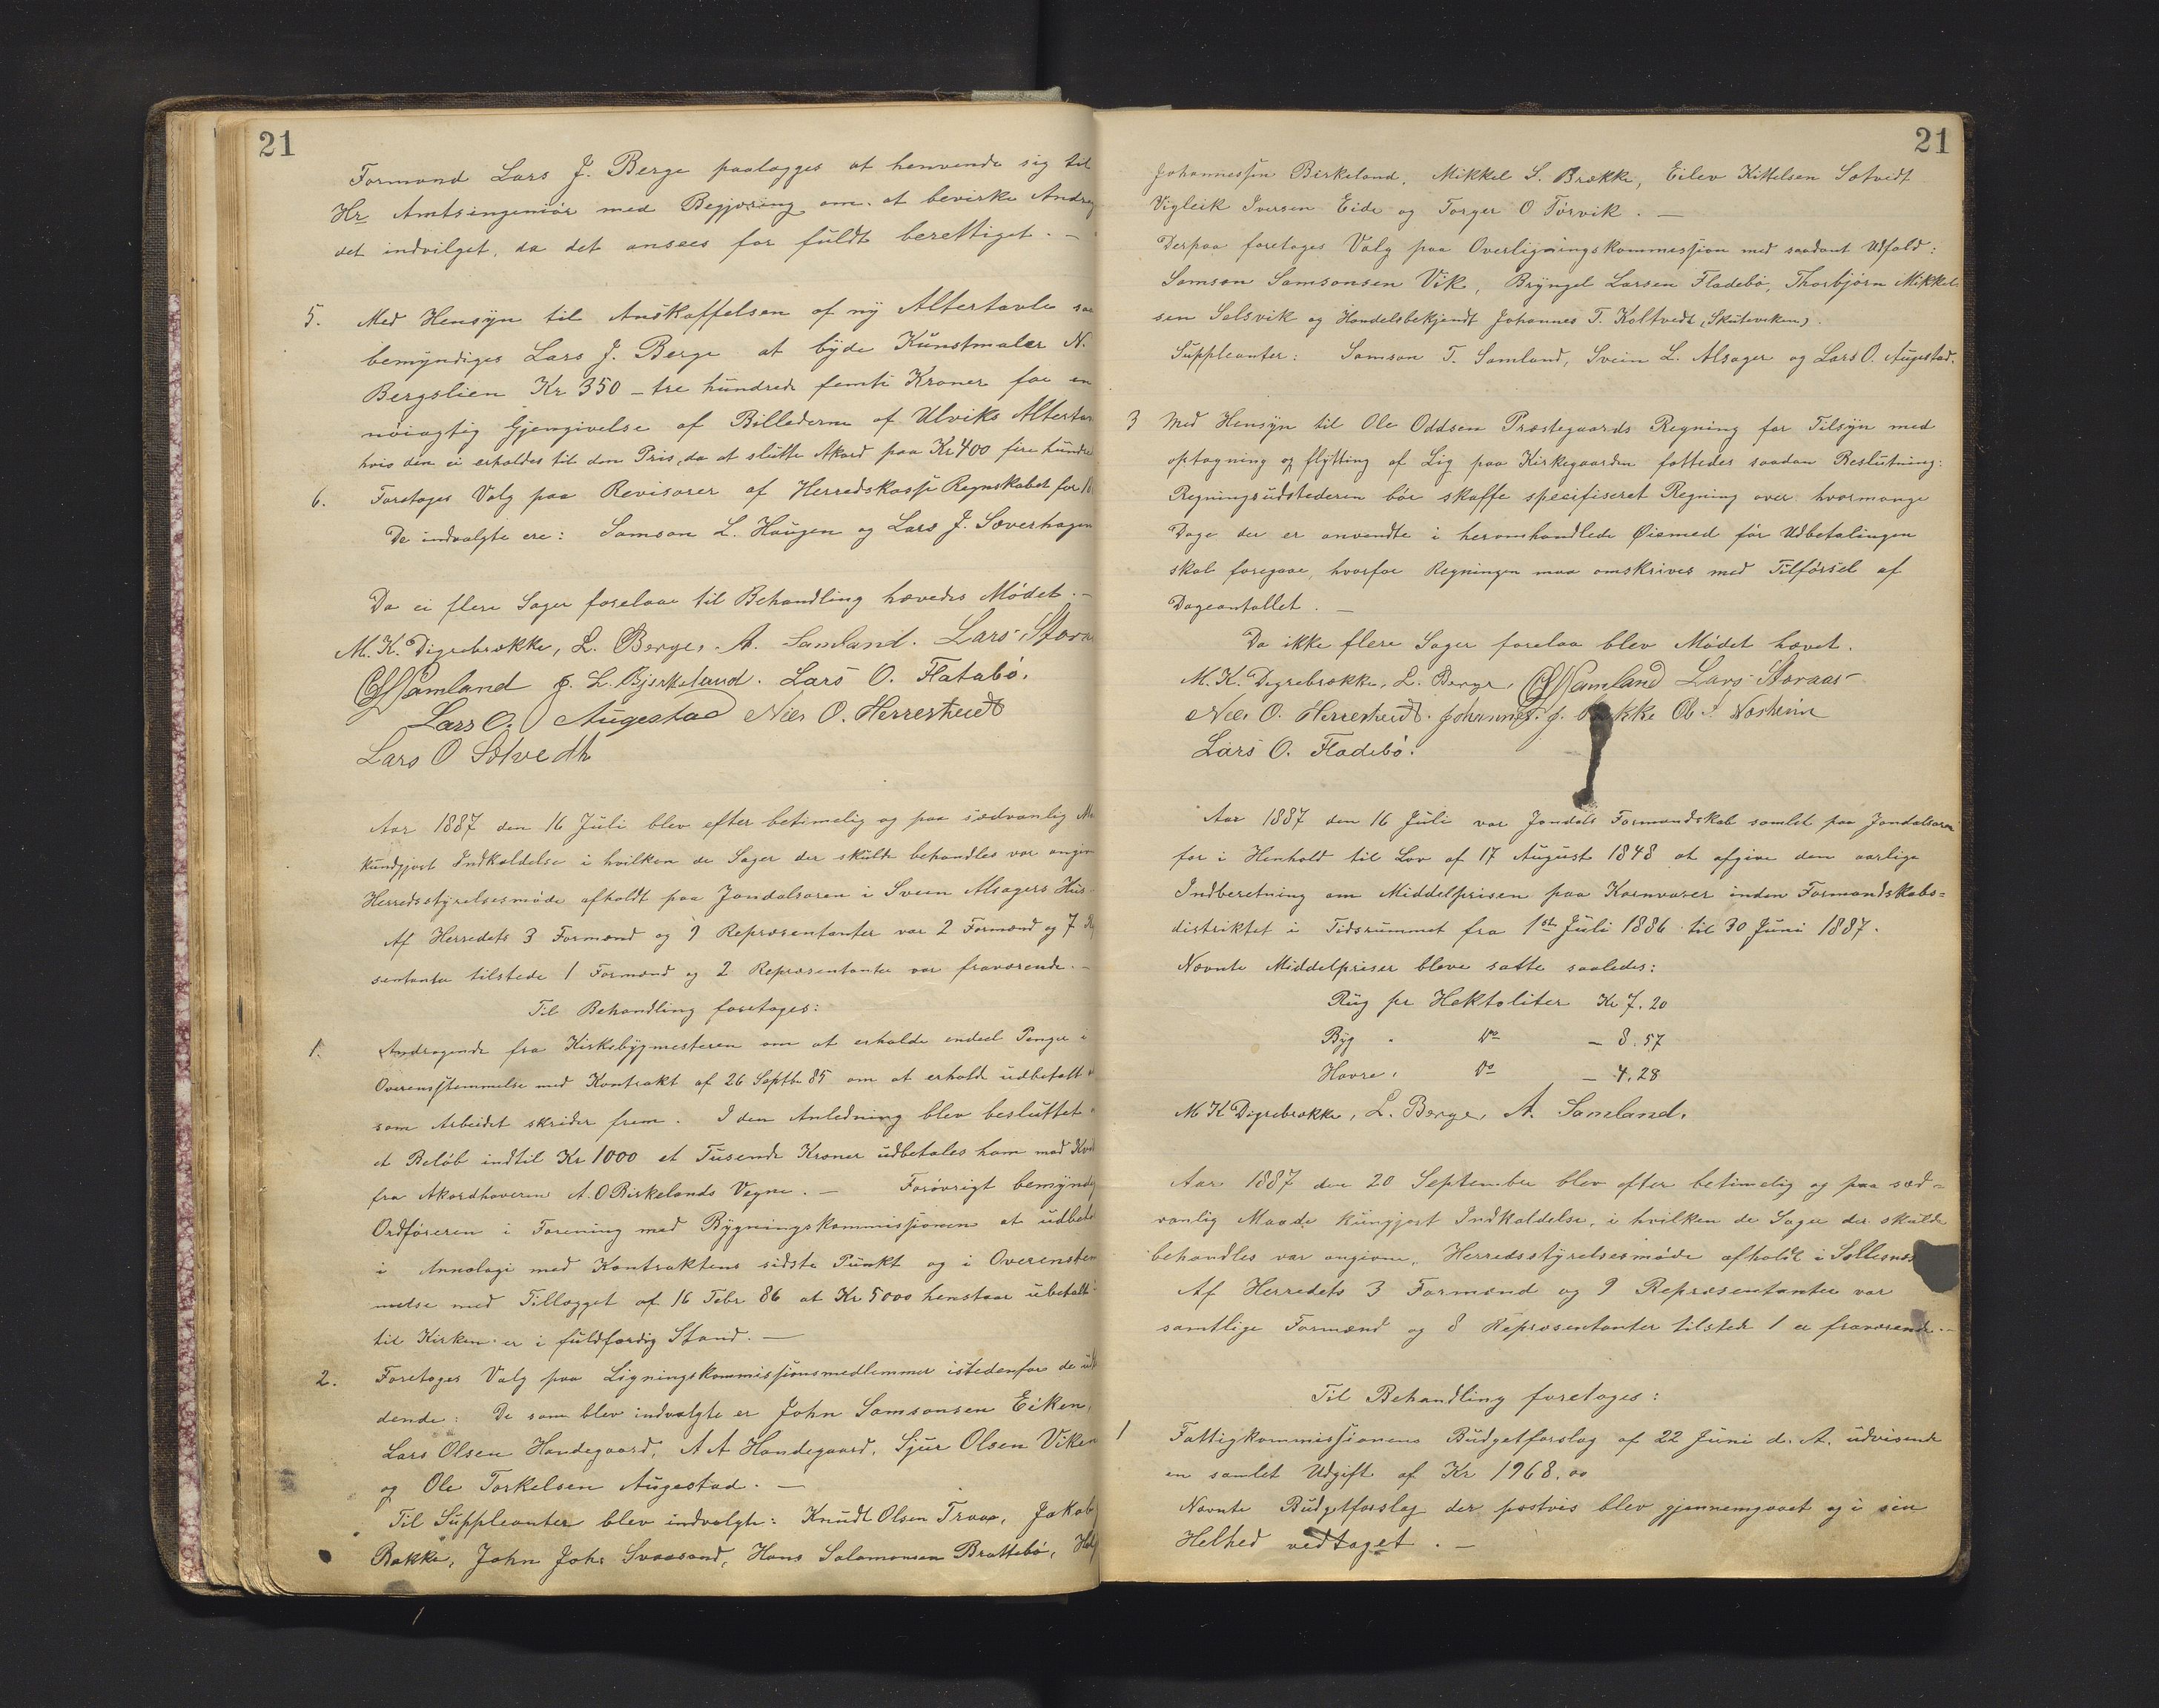 21
Formand Lars J. Berge paalægges at henvende sig til
Hr Amtsingeniör med Begjæring om at bevirke Andrag
det indvilget, da det ansees for fuldt berettiget. —
5. Med Hensyn til Anskaffelsen af ny Altertavle saa
bemyndiges Lars J. Berge at byde Kunstmaler N.
Bergslien Kr 350 – tre hundrede femti Kroner for en
nöiagtig Gjengivelse af Billederne af Ulviks Altertav
hvis den ei erholdes til den Pris, da at slutte Akord paa Kr 400 fire hundre
6. Foretages Valg paa Revisorer af Herredskasse Regnskabet for 18
De indvalgte ere: Samson L. Haugen og Lars J. Sæverhagen
Da ei flere Sager forelaae til Behandling hævedes Mödet. —
M. K. Digrebrække, L. Berge, A. Samland. Lars Stora
Samland J. L. Bjerkeland. Lars O. Flatabö.
Lars O. Augestad Nils O. Herrestvedt
Lars O Sætvedt
Aar 1887 den 16 Juli blev efter betimelig og paa sædvanlig Ma
kundgjort Indkaldelse i hvilken de Sager der skulde behandles var angiv
Herredsstyrelsesmöde afholdt paa Jondalsören i Svein Alsagers Hus
Af Herredets 3 Formænd og 9 Repræsentanter var 2 Formænd og 7 Re
sentanter tilstede 1 Formand og 2 Repræsentanter var fraværende. —
Til Behandling foretages:
1. Andragende fra Kirkebygmesteren om at erholde endeel Penger i
Overensstemmelse med Kontrakt af 26 Septbr 85 om at erholde udbetalt
som Arbeidet skrider frem. I den Anledning blev besluttet
et Belöb indtil Kr 1000 et Tusende Kroner udbetales ham mod Kvit
fra Akordhaveren A. O Birkelands Vegne. — Forövrigt bemynd
Ordföreren i Forening med Bygningskommissionen at udbet
i Annalogi med Kontraktens sidste Punkt og i Overensstem
melse med Tillægget af 16 Febr 86 at Kr 5000 henstaar ubetalt
til Kirken er i fuldfærdig Stand. —
2. Foretages Valg paa Ligningskommissionsmedlemmer istedenfor de udt
dende: De som blev indvalgte er John Samsonsen Eiken,
Lars Olsen Handegaard, A A Handegaard, Sjur Olsen Viken
og Ole Torkelsen Augestad. —
Til Suppleanter blev indvalgte: Knudt Olsen Traaa, Jakob
Bakke, John Johs Svaasand, Hans Salamonsen Brattebö,
21
Johannessen Birkeland, Mikkel S. Brække, Eilev Kittelsen Sætvedt
Vigleik Iversen Eide og Torger O Törvik. —
Derpaa foretages Valg paa Overligningskommission med saadant Udfald:
Samson Samsonsen Vik, Bryngel Larsen Fladebö, Thorbjörn Mikkel
sen Selsvik og Handelsbekjendt Johannes T. Koltvedt (Skuteviken).
Suppleanter: Samson T. Samland, Svein L. Alsager og Lars O. Augestad.
3 Med Hensyn til Ole Oddsen Præstegaards Regning for Tilsyn med
optagning og flytting af Lig paa Kirkegaarden fattedes saadan Beslutning:
Regningsudstederen bör skaffe specifiseret Regning over hvormange
Dage der er anvendte i heromhandlede Öiemed för Udbetalingen
skal foregaae, hvorfor Regningen maa omskrives med Tilförsel af
Dageantallet. —
Da ikke flere Sager forelaa blev Mödet hævet.
M. K. Digrebrække, L. Berge, Samland Lars Storaas
Nils O. Herrestvedt. Johannes J. Bakke Ol. Næsheim
Lars O. Fladebö.
Aar 1887 den 16 Juli var Jondals Formandskab samlet paa Jondalsören
for i Henhold til Lov af 17 August 1848 at afgive den aarlige
Indberetning om Middelprisen paa Kornvarer inden Formandskabs=
distriktet i Tidsrummet fra 1ste Juli 1886 til 30 Juni 1887.
Nævnte Middelpriser bleve satte saaledes:
Rug pr Hektoliter Kr 7.20
Byg " Do – 8.57
Havre " Do – 4.28
M K Digrebrække, L. Berge, A. Samland.
Aar 1887 den 20 September blev efter betimelig og paa sæd=
vanlig Maade kungjort Indkaldelse, i hvilken de Sager der skulde
behandles var angivne, Herredsstyrelsesmöde afholdt i Sollesnæs
Af Herredets 3 Formænd og 9 Repræsentanter var
samtlige Formænd og 8 Repræsentanter tilstede 1 er fraværende. —
Til Behandling foretages:
1 Fattigkommissionens Budgetforslag af 22 Juni d. A. udvisende
en samlet Udgift af Kr 1968.00
Nævnte Budgetforslag der postvis blev gjennemgaaet og i sin
Helhed vedtaget. —